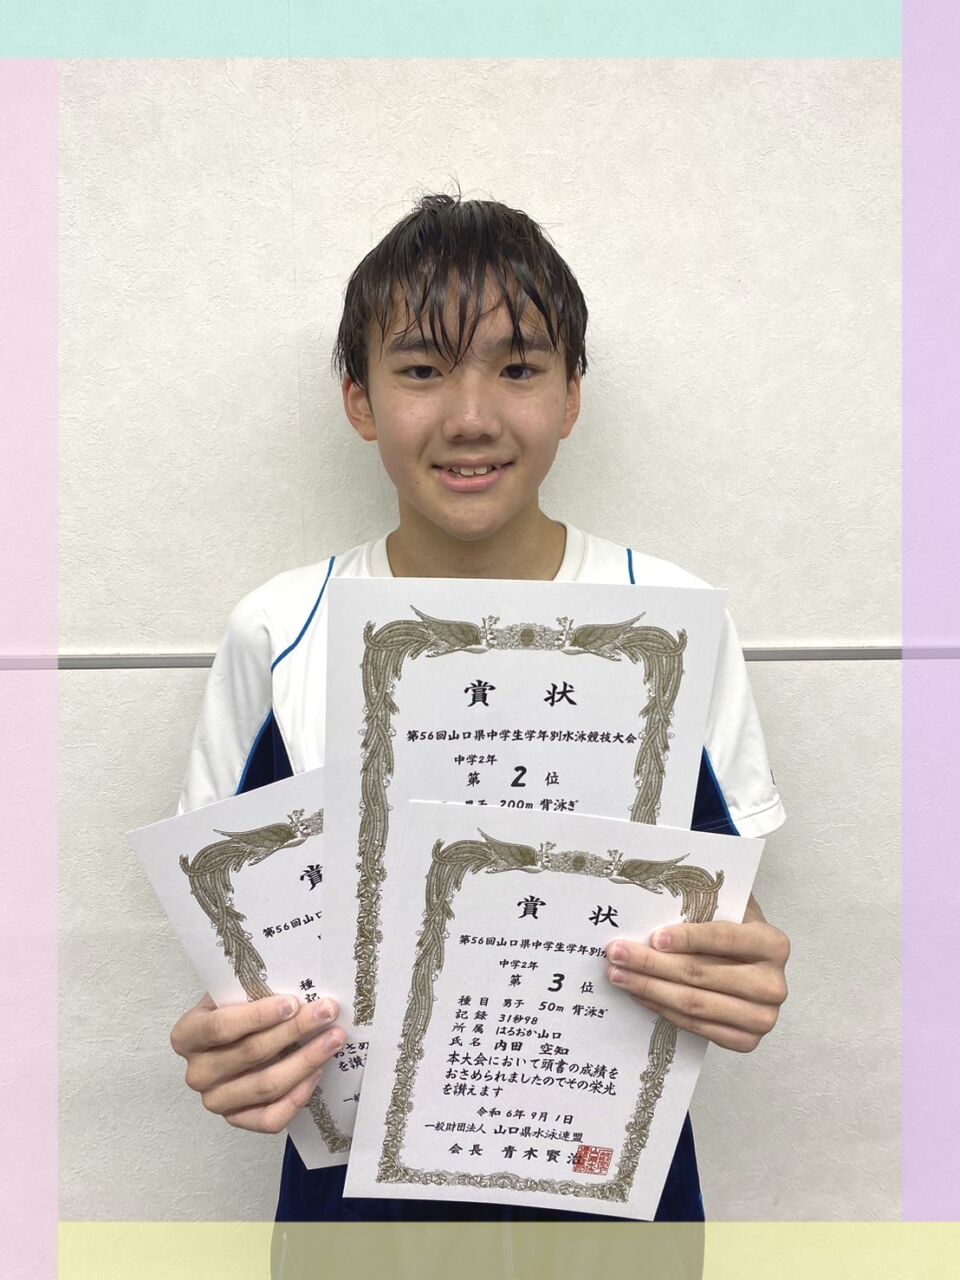 賞 状
第56回山口県中学生学年別水泳競技大会
中学2年
第 2 位
男子 200m 背泳ぎ
賞
第56回山口
種
記
おさめ
を讃
一般
賞 状
第56回山口県中学生学年別水
中学2年
第 3 位
種 目 男子 50m 背泳ぎ
記 録 31秒98
所 属 はるおか山口
氏 名 内田 空知
本大会において頭書の成績を
おさめられましたのでその栄光
を讃えます
令和 6年 9月 1日
一般財団法人 山口県水泳連盟
会 長 青 木 賢 治